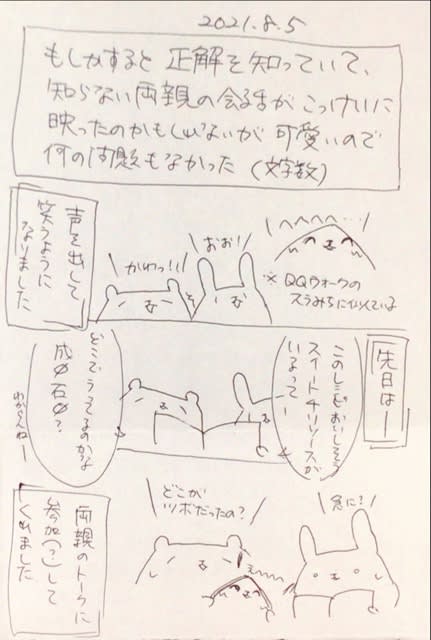 2021.8.5
もしかすると 正解を知っていて、
知らない両親の会話が こっけいに
映ったのかもしれないが 可愛いので
何の問題もなかった (文字数)
声を出して
笑うように
なりました
かわっ!!
おお!
へへへへ…
※ QQウォークの
スラみちに似ている
先日はー
このレシピおいしそう
スイートチリソースが
いるってー
どこでうってるのかな
成城石井?
わからんねー
急に?
どこが
ツボだったの?
両親のトークに
参加(?)して
くれました